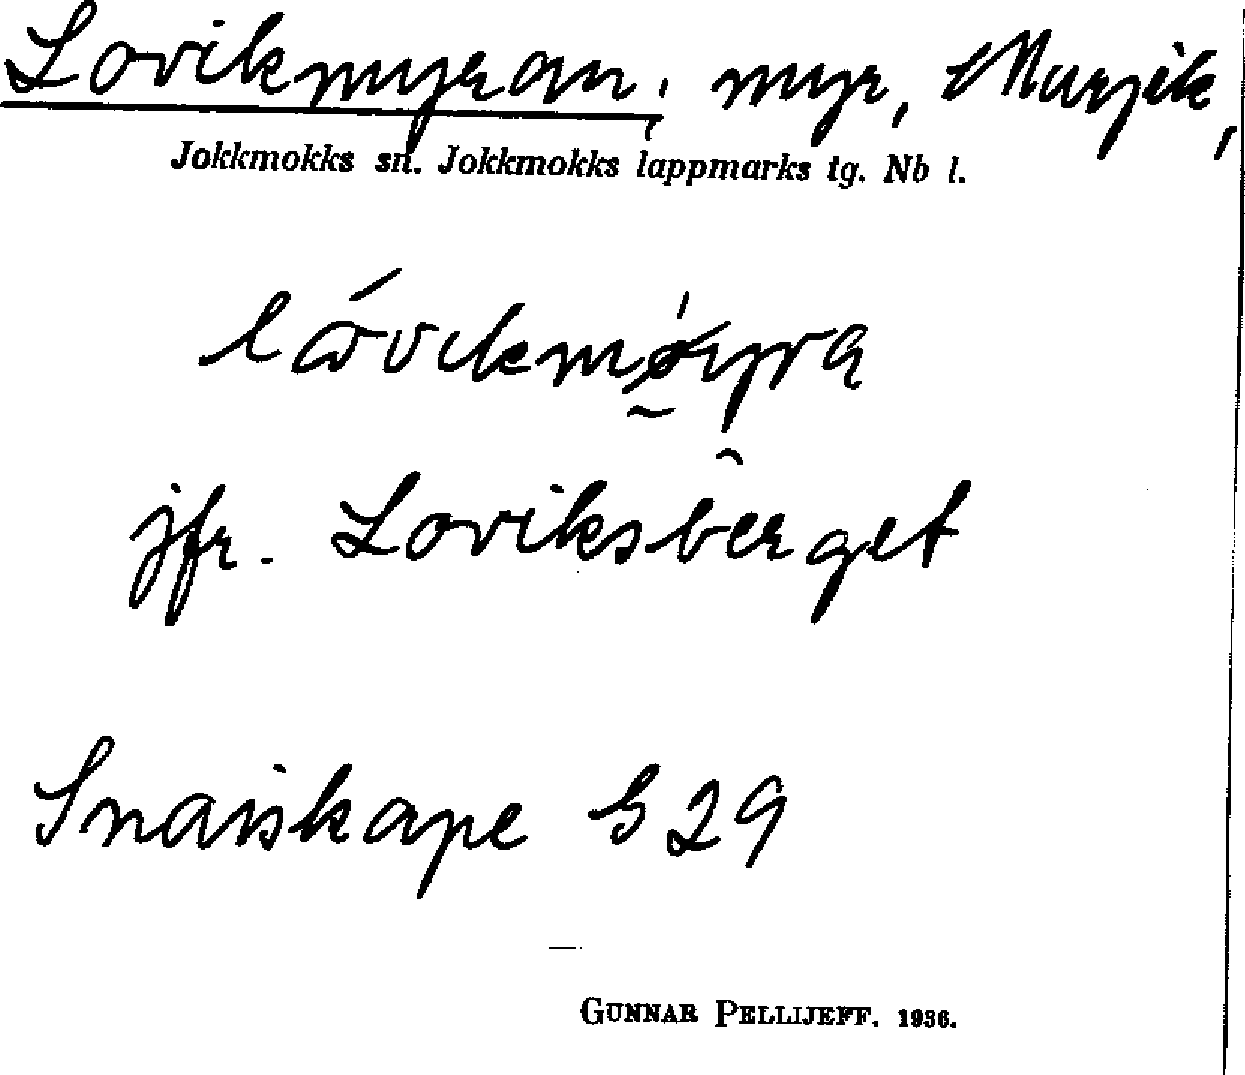 Lovikmyran, myr, Murjik,
Jokkmokks sn. Jokkmokks lappmarks tg. Nb l.
jfr. Loviksberget
Snaiskape S 29
GUNNAR PELLIJEFF. 1936.